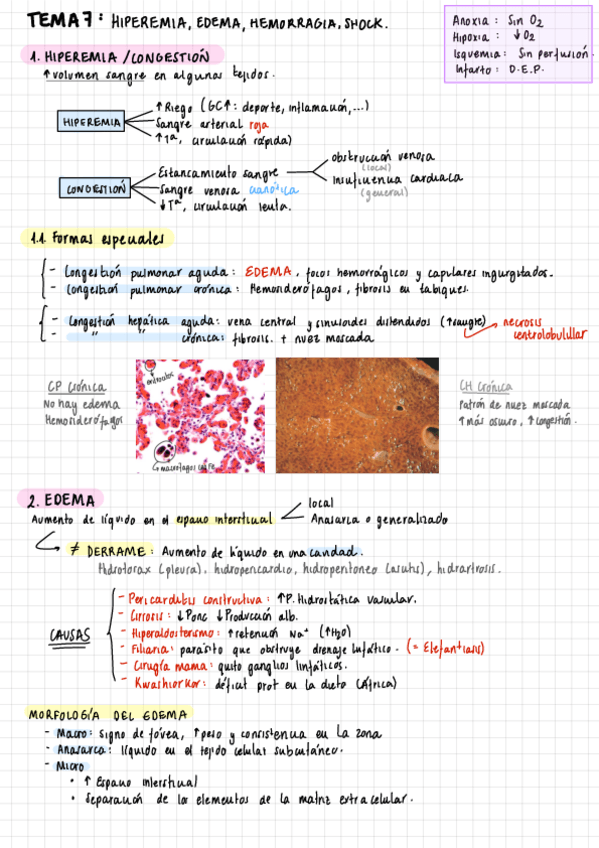 TEMA 7: HIPEREMIA, EDEMA, HEMORRAGIA, SHOCK.
Anoxia: Sin O2
Hipoxia: ↓O2
Isquemia: Sin perfusión
Infarto: D.E.P.
1. HIPEREMIA / CONGESTIÓN
↑volumen sangre en algunos tejidos.
HIPEREMIA
↑Riego (GC↑: deporte, inflamación,...)
Sangre arterial roja
↑Tª, circulación rápida)
CONGESTIÓN
Estancamiento sangre
obstrucción venosa
(local)
Insuficiencia cardiaca
(general)
Sangre venosa cianótica
↓Tª, circulación lenta.
1.1. Formas especiales
- Congestión pulmonar aguda: EDEMA, focos hemorrágicos y capilares ingurgitados.
- Congestión pulmonar crónica: Hemosiderófagos, fibrosis en tabiques.
- Congestión hepática aguda: vena central y sinusoides distendidos (↑sangre)
necrosis
centrolobulillar
- " " crónica: fibrosis. + nuez moscada
CP crónica
No hay edema
Hemosiderófagos
eritrocitos
macrófagos
CH crónica
Patrón de nuez moscada
↑más oscuro, ↑congestión.
2. EDEMA
Aumento de líquido en el espacio intersticial
local
Anasarca o generalizado
≠ DERRAME: Aumento de líquido en una cavidad.
Hidrotorax (pleura), hidropericardio, hidroperitoneo (ascitis), hidrartrosis.
CAUSAS
- Pericarditis constructiva: ↑P. Hidrostática vascular.
- Cirrosis: ↓Ponc ↓Producción alb.
- Hiperaldosterismo: ↑retención Na+ (↑H2O)
- Filaria: parásito que obstruye drenaje linfático. (= Elefantiasis)
- Cirugía mama: quito ganglios linfáticos.
- Kwashiorkor: déficit prot en la dieta (África)
MORFOLOGÍA DEL EDEMA
- Macro: signo de fóvea, ↑peso y consistencia en la zona
- Anasarca: líquido en el tejido celular subcutáneo.
- Micro
• ↑ Espacio intersticial
• Separación de los elementos de la matriz extracelular.